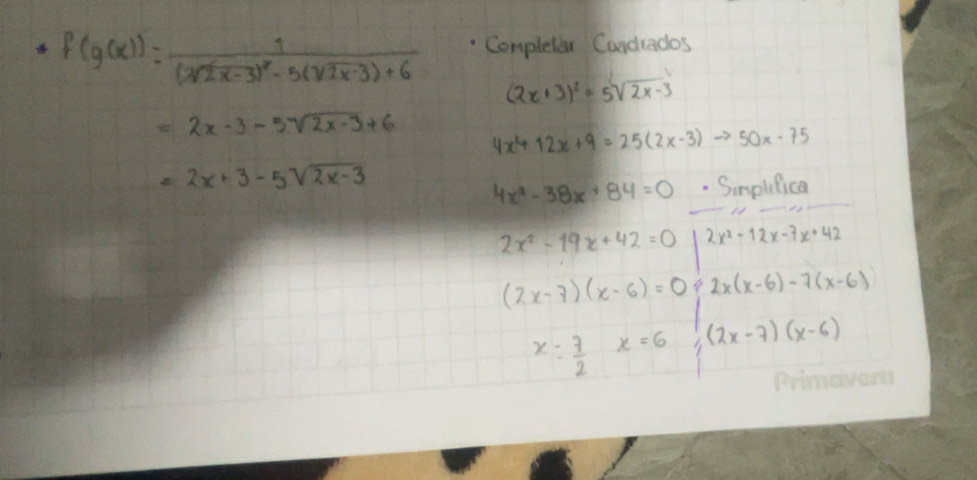 * f(g(x)) = 1 / (√2x-3)² - 5(√2x-3) + 6
= 2x - 3 - 5√2x-3 + 6
= 2x + 3 - 5√2x-3
• Completar Cuadrados
(2x+3)² = 5√2x-3
4x²+ 12x + 9 = 25(2x-3) → 50x - 75
4x² - 38x + 84 = 0 • Simplifica
2x² - 19x + 42 = 0 | 2x² - 12x - 7x + 42
(2x-7)(x-6) = 0 | 2x(x-6) - 7(x-6)
x = 7/2 x = 6 | (2x-7)(x-6)
Primavera